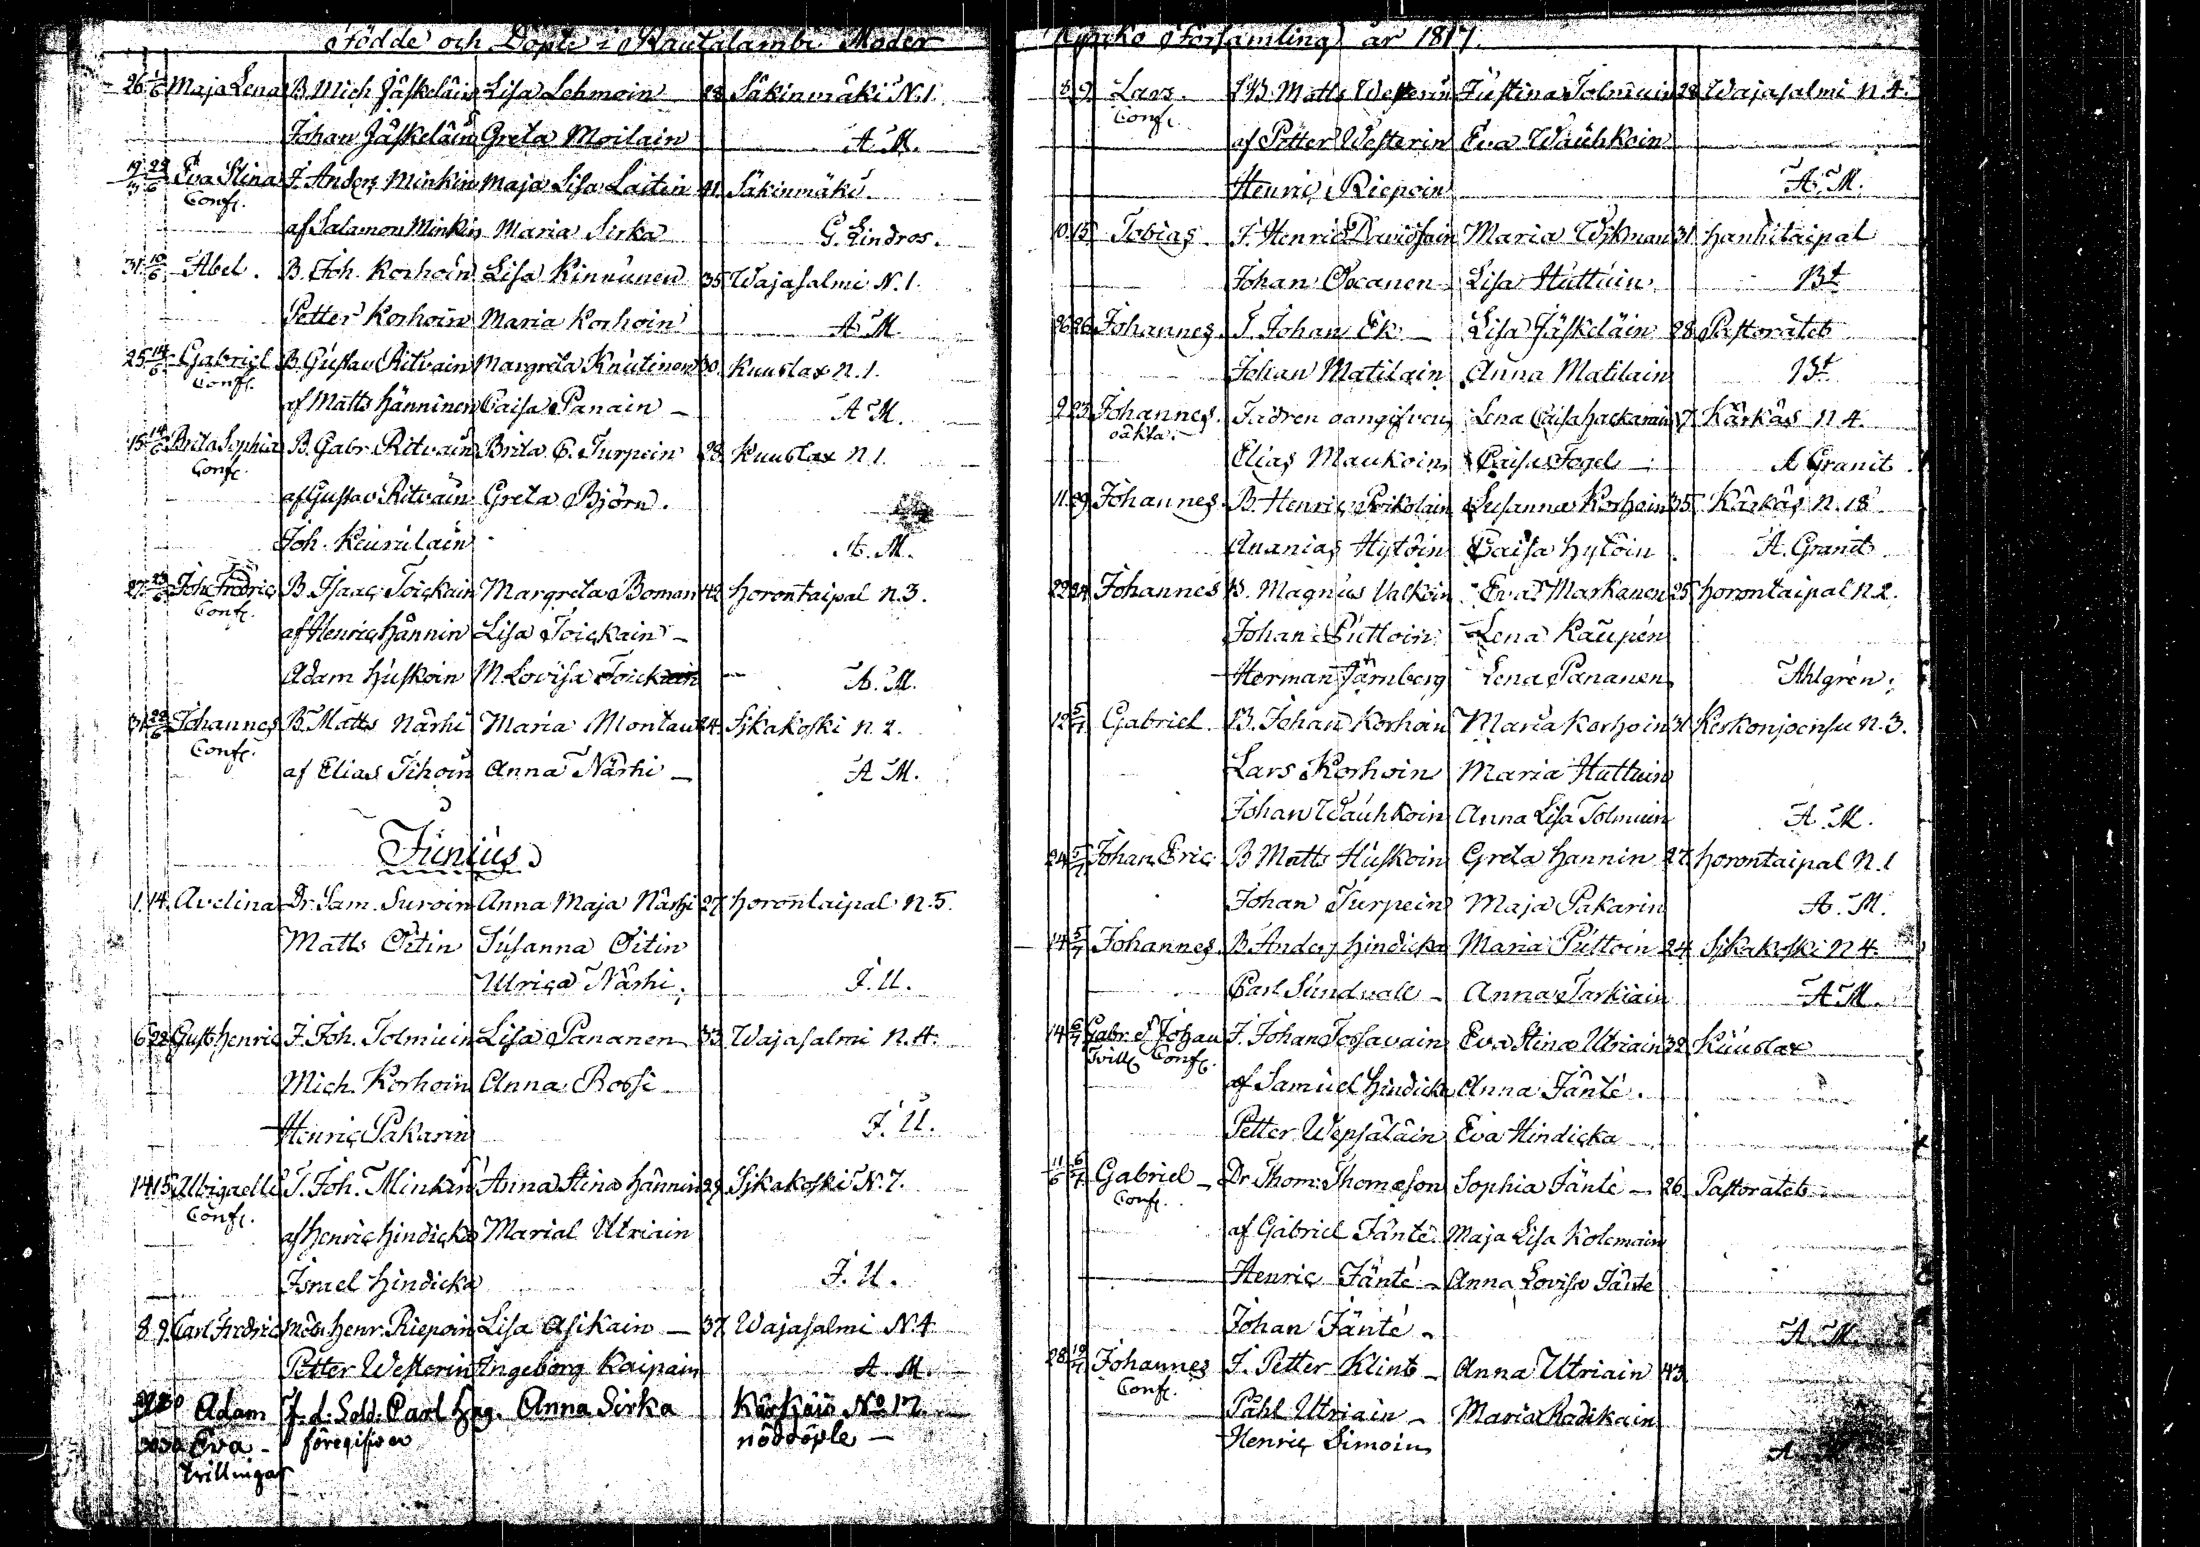 Födde och Döpte i Rautalambi Moder
26 1/6 Maja Lena B. Mich Jäskeläin Lisa Lehmoin 28 Säkinmäki N.1.
Johan Jäskeläin Greta Moilain A. M.
19 22/6 Eva Stina J. Anders Minkin Maja Lisa Laitin 41. Säkinmäki.
Conf. af Salamon Minkin Maria Sirka G. Lindros.
31. 10/6 Abel. B. Joh. Korhoin Lisa Kinnunen 35 Wajasalmi N.1.
Petter Korhoin Maria Korhoin A. M.
25 14/6 Gabriel B. Gustav Ritvain Margreta Knutinen 30. Kuuslax N.1.
Conf. af Matts Hänninen Caisa Panain – A M.
15 14/6 Brita Sophia B. Gabr. Ritvain Brita C. Turpein 28. Kuuslax N 1.
Conf. af Gustav Ritvain Greta Björn.
Joh. Keurulain A. M.
27 23/6 Joh. Fredric B. Isaac Toickain Margreta Boman 42 Horontaipal N.3.
Conf. af Henric Hännin Lisa Toickain –
Adam Huskoin M. Lovisa Toickain A. M.
31 22/6 Johannes B. Matts Närhi Maria Montau 24. Sikakoski N. 2.
Conf. af Elias Tihoin Anna Närhi – A M.
Junius
1. 14. Avelina Dr. Sam. Suroin Anna Maja Närhi 27 Horontaipal N.5.
Matts Oitin Susanna Oitin
Ulrica Närhi. J. U.
6 22 Gust Henric J. Joh. Tolmuin Lisa Pananen 33. Wajasalmi N.4.
Mich. Korhoin Anna Rossi
Henric Pakarin J. U.
14 15 Abigaelle T. Joh. Minkin Anna Stina Hännin 29 Sikakoski N.7.
Conf. af Henric Hindicka Maria Utriain
Israel Hindicka J. U.
8 9. Carl Fredric Henr. Riepoin Lisa Asikain – 37 Wajasalmi N.4
Petter Westerin Ingeborg Kaipain A. M.
Adam f. d. Sold. Carl Hag. Anna Sirka No 17.
30 30 Eva – föregifven nöddöple –
tvillingar
Kyrko Församling år 1817.
8 9 Lars. Matts Westerin Justina Tolmuin 28 Wajasalmi N 4.
Conf. af Petter Westerin Eva Wauhkoin
Henric Riepoin A. M.
10. 15 Tobias J. Henric Davidsain Maria Wikman 31 Hanhitaipal
Johan Ockanen Lisa Huttuin Bt
26 26 Johannes T. Johan Ek – Lisa Jäskeläin 28 Pastoratet
Johan Matilain Anna Matilain Bt
9 23 Johannes. Fadren oangifven Lena Caisa 17 Kärkäs N 4.
oäkta. Elias Maukoin Caisa Fogel – A Granit
11. 29 Johannes B. Henric Poikolain Susanna Korhoin 35 Kärkäs N. 18
Ananias Hytöin Caisa Hytöin A. Granit
22 24 Johannes B. Magnus Valkoin Eva Markanen 25 Horontaipal N 2.
Johan Puttoin Lena Kaupen
Herman Järnberg Lena Pananen Ahlgren.
12 5/7 Gabriel B. Johan Korhoin Maria Korhoin 31 Kerkonjoensu N.3.
Lars Korhoin Maria Huttuin
Johan Wauhkoin Anna Lisa Tolmuin A. M.
24 5/7 Johan Eric B Matts Huskoin Greta Hannin 27 Horontaipal N.1
Johan Turpein Maja Pakarin A. M.
14 5/7 Johannes. B. Anders Hindicka Maria Puttoin 24 Sikakoski N 4.
Carl Sundvall – Anna Tarkiain A M.
14 6/7 Gabr. & Johan J. Johan Tossavain Eva Stina Utriain 32 Kuuslax
Tvill Conf. af Samuel Hindicka Anna Jänté.
Petter Wepsäläin Eva Hindicka
11/6 6/7 Gabriel – Dr Thom: Thomæson Sophia Jänté – 26. Pastoratet
Conf. af Gabriel Jänté. Maja Lisa Kolemain
Henric Jänté – Anna Lovisa Jänte
Johan Jänté – A. M.
28 19/7 Johannes J. Petter Klint – Anna Utriain 43
Conf. Påhl Utriain – Maria Radikain
Henric Simoin A. M